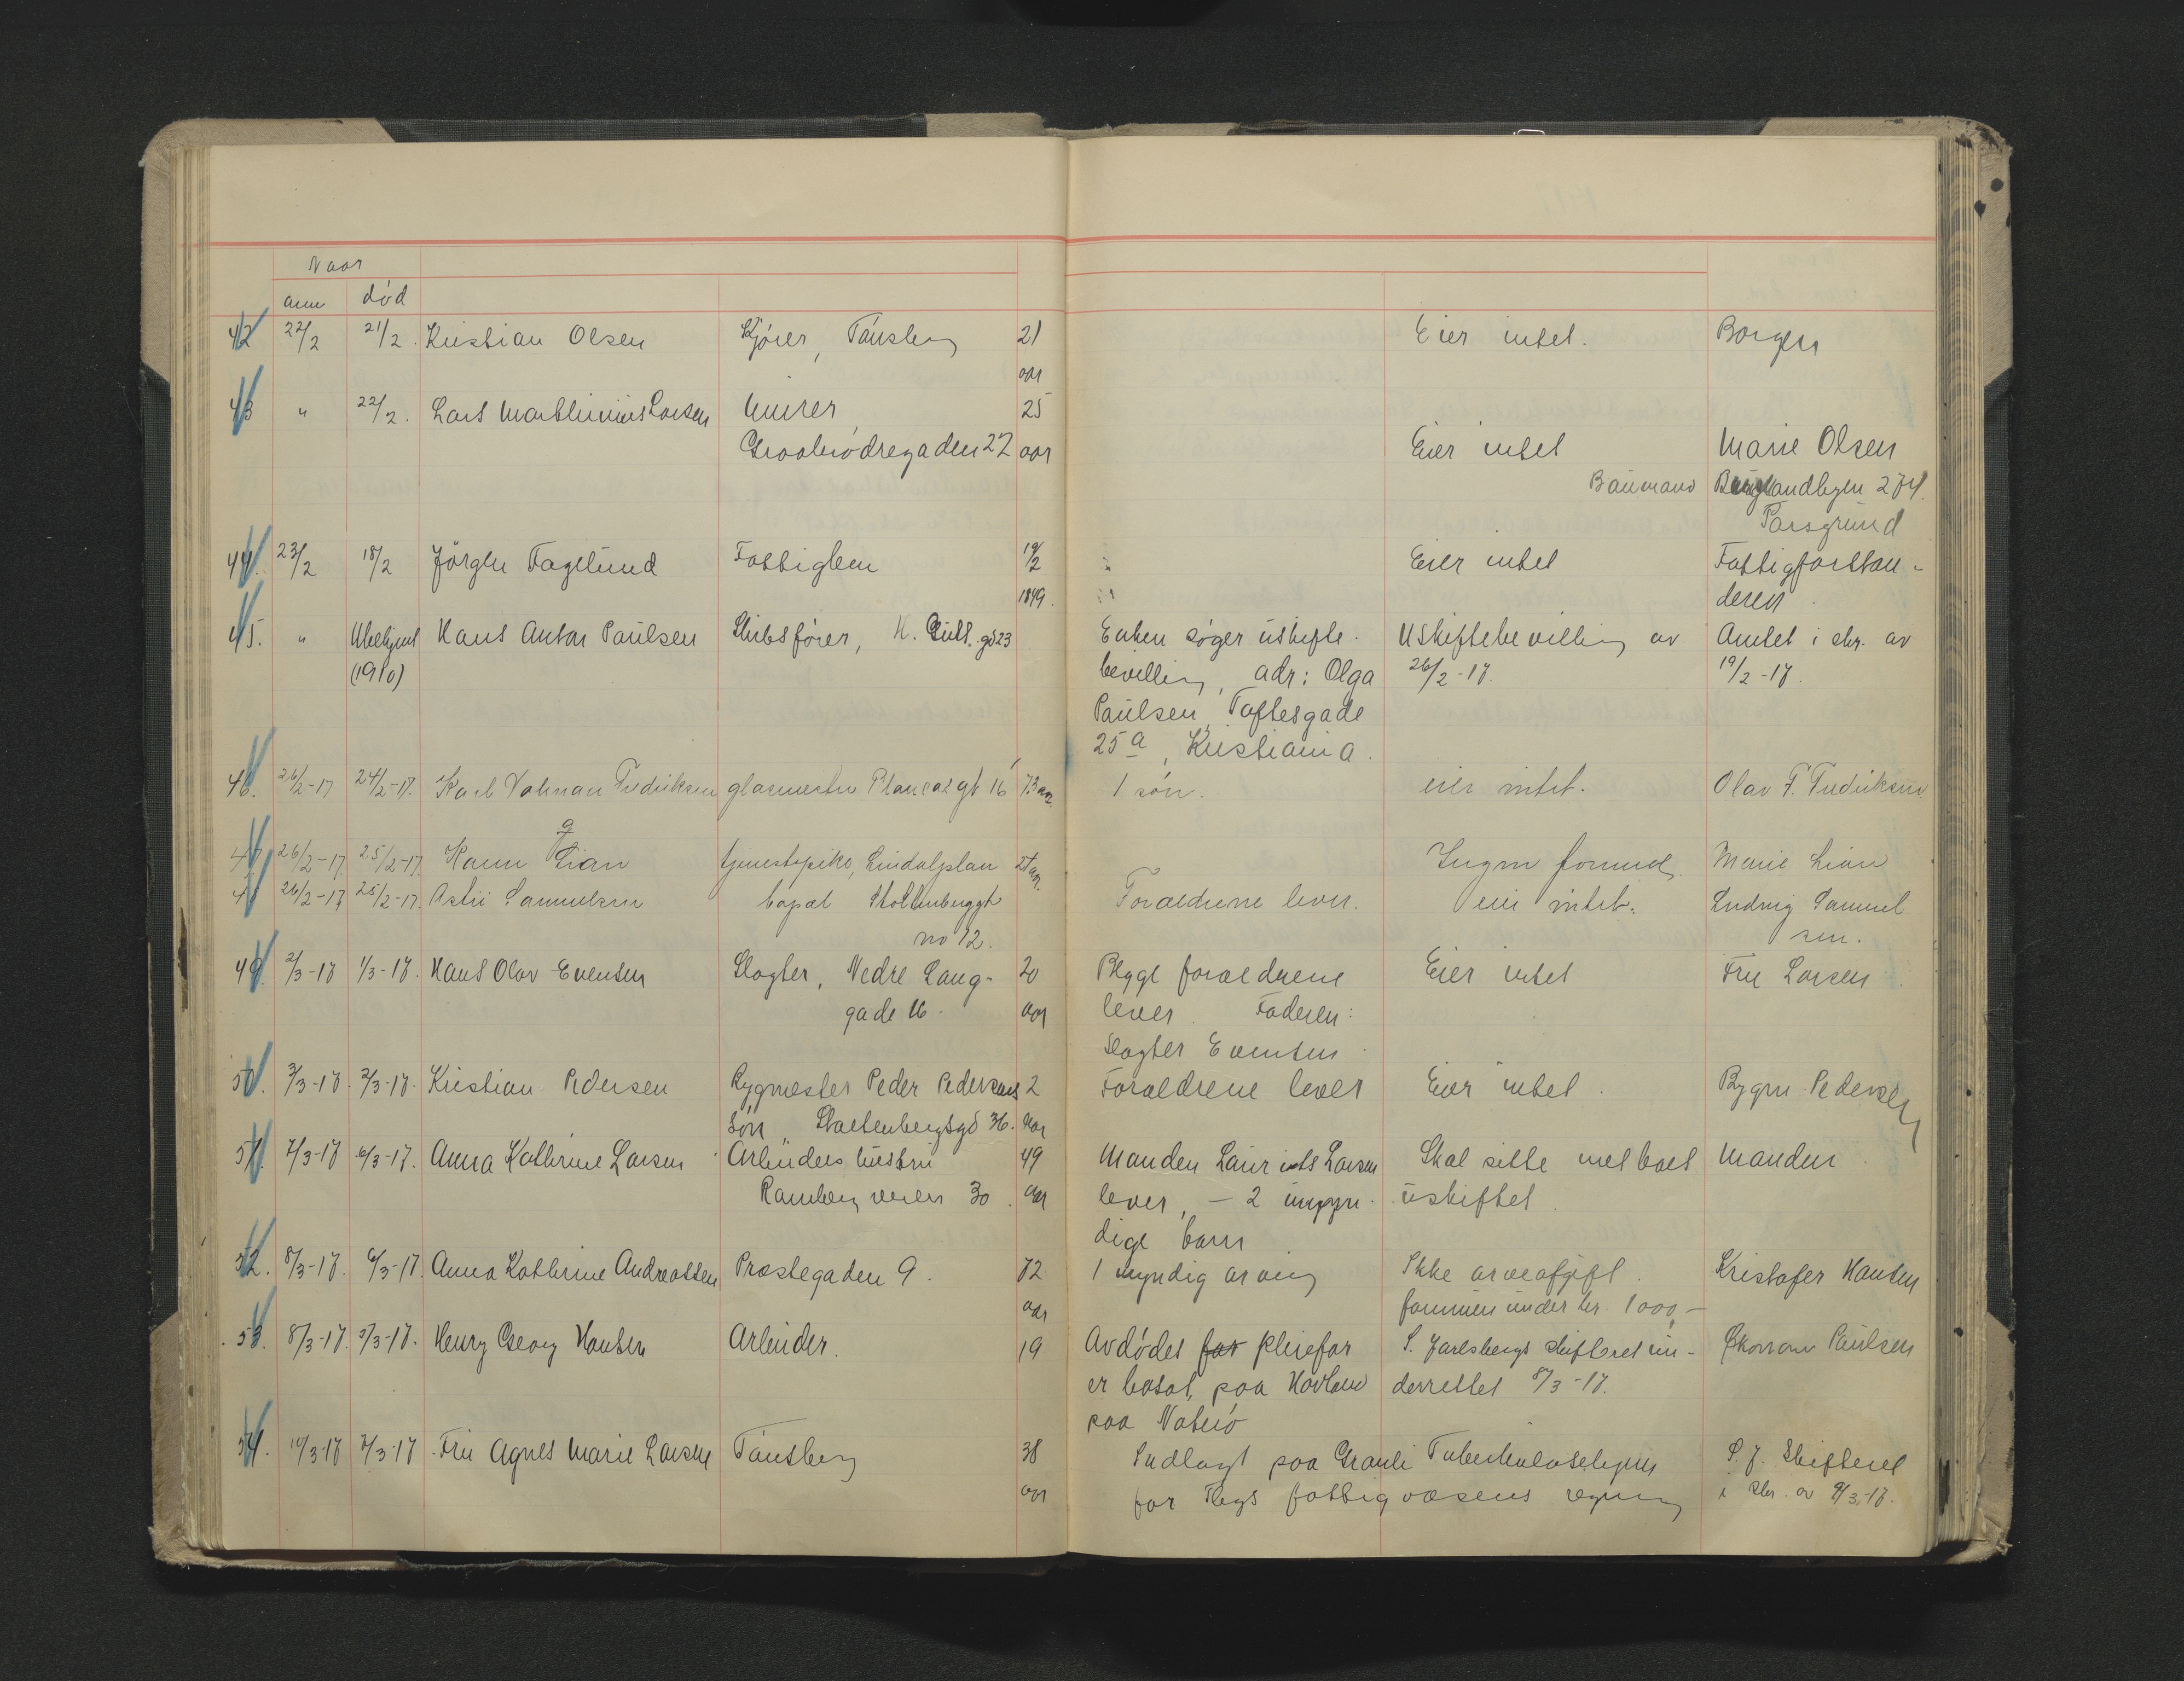 Naar
anm død
42 22/2 21/2. Kristian Olsen Kjører, Tønsberg 21 Eier intet. Borgen
aar
43 " 22/2. Lars Marthinius Larsen Murer, 25
Graabrødregaden 27 aar Eier intet Marie Olsen
274.
Porsgrund
44. 23/2 18/2 Jörgen Fagelund Fattiglem 19/2 Eier intet Fattigforstan-
1849. deren
45. " Ubekjent Hans Anton Paulsen Skibsfører, 23 Enken søger uskifte- Uskiftebevilling av Amtet i skr. av
(1910) bevilling, adr: Olga 26/2-17. 19/2-17.
Paulsen, Toftesgade
25a, Kristiania.
46. 26/2-17 24/2-17. Karl Fredriksen glasmester 16 73 aar. 1 søn. eier intet. Olav F. Fredriksen
47 26/2-17. 25/2-17. Lian tjenestepike, Lindalplan Ingen formue. Marie Lian
48 26/2-17 25/2-17. Astri Samuelsen Stoltenberggt Forældrene lever. eier intet. Ludvig Samuel
no 12. sen.
49. 2/3-17 1/3-17. Hans Olav Evensen Slagter, Nedre Lang- 20 Begge forældrene Eier intet Fru Larsen
gade 16. aar lever. Faderen:
Slagter Evensen
50. 3/3-17. 2/3-17. Kristian Pedersen Bygmester Peder Pedersens 2 Forældrene lever Eier intet. Bygm. Pedersen
søn, Stoltenbergsgd 36. aar
51. 7/3-17 6/3-17. Anna Kathrine Larsen Arbeiders hustru 49 Manden Laurints Larsen Skal sitte med boet Manden
Ramberg veien 30. aar lever, - 2 umyn- uskiftet.
dige barn
52. 8/3-17. 6/3-17. Anna Kathrine Andreassen Præstegaden 9. 72 1 myndig arving Ikke arveafgift. Kristofer Hansen
aar formuen under kr. 1000,-
53. 8/3-17. 5/3-17. Henry Georg Hansen Arbeider. 19 Avdødes far pleiefar S. Jarlsbergs skifteret un- Paulsen
er bosat, paa derrettet 8/3-17.
paa Nøterø
54. 10/3-17 7/3-17 Fru Agnes Marie Larsen Tønsberg 38 Indlagt paa Granli Tuberkulosehjem S. J. Skifteret
aar for fattigvæsens regning i skr. av 9/3-17.